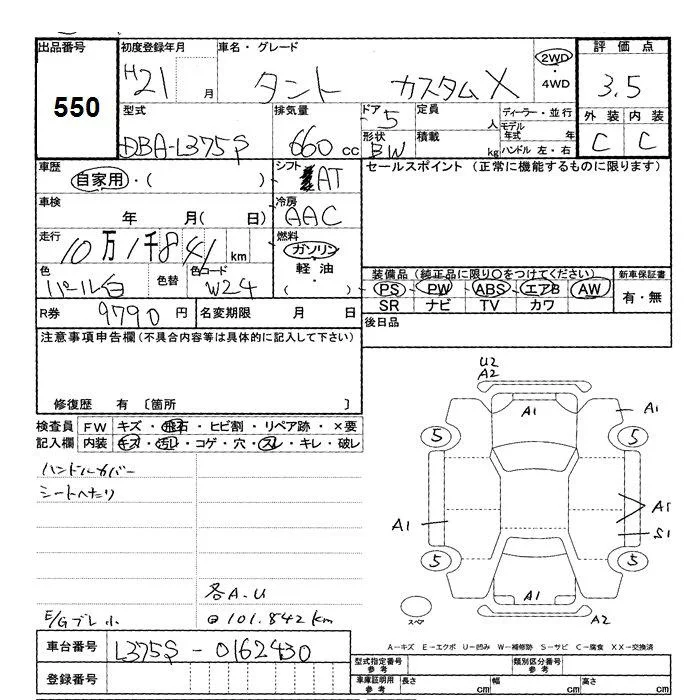 出品番号 初度登録年月 車名・グレード 評価点
550
H21 月 タント カスタムX 2WD・4WD 3.5
型式 排気量 ドア 定員 ディーラー・並行 外装 内装
DBA-L375S 660 cc 5 人 モデル年式 年 C C
形状 積載 ハンドル 左・右
BW kg
車歴 シフト セールスポイント (正常に機能するものに限ります)
自家用・( ) AT
車検 冷房
年 月( 日) AAC
走行 燃料
10万1千841 km ガソリン
軽油
( )
色 色替 色コード
パール白 W24
装備品 (純正品に限り○をつけてください) 新車保証書
PS PW ABS エアB AW 有・無
SR ナビ TV カワ
R券 9790 円 名変期限 月 日 後日品
注意事項申告欄(不具合内容等は具体的に記入して下さい)
修復歴 有 〔箇所 〕
検査員 FW キズ・飛石・ヒビ割・リペア跡・×要
記入欄 内装 キズ・汚レ・コゲ・穴・スレ・キレ・破レ
ハンドルカバー
シートへたり
各A.U
E/Gブレ小 101.842km
U2
A2
A1 A1
5 5
A1 A1
S1
5 5
A1
スペア A2
A-キズ E-エクボ U-凹み W-補修跡 S-サビ C-腐食 XX-交換済
車台番号 L375S-0162430
登録番号
型式指定番号 参考 類別区分番号 参考
車庫証明用 参考 長さ cm 幅 cm 高さ cm